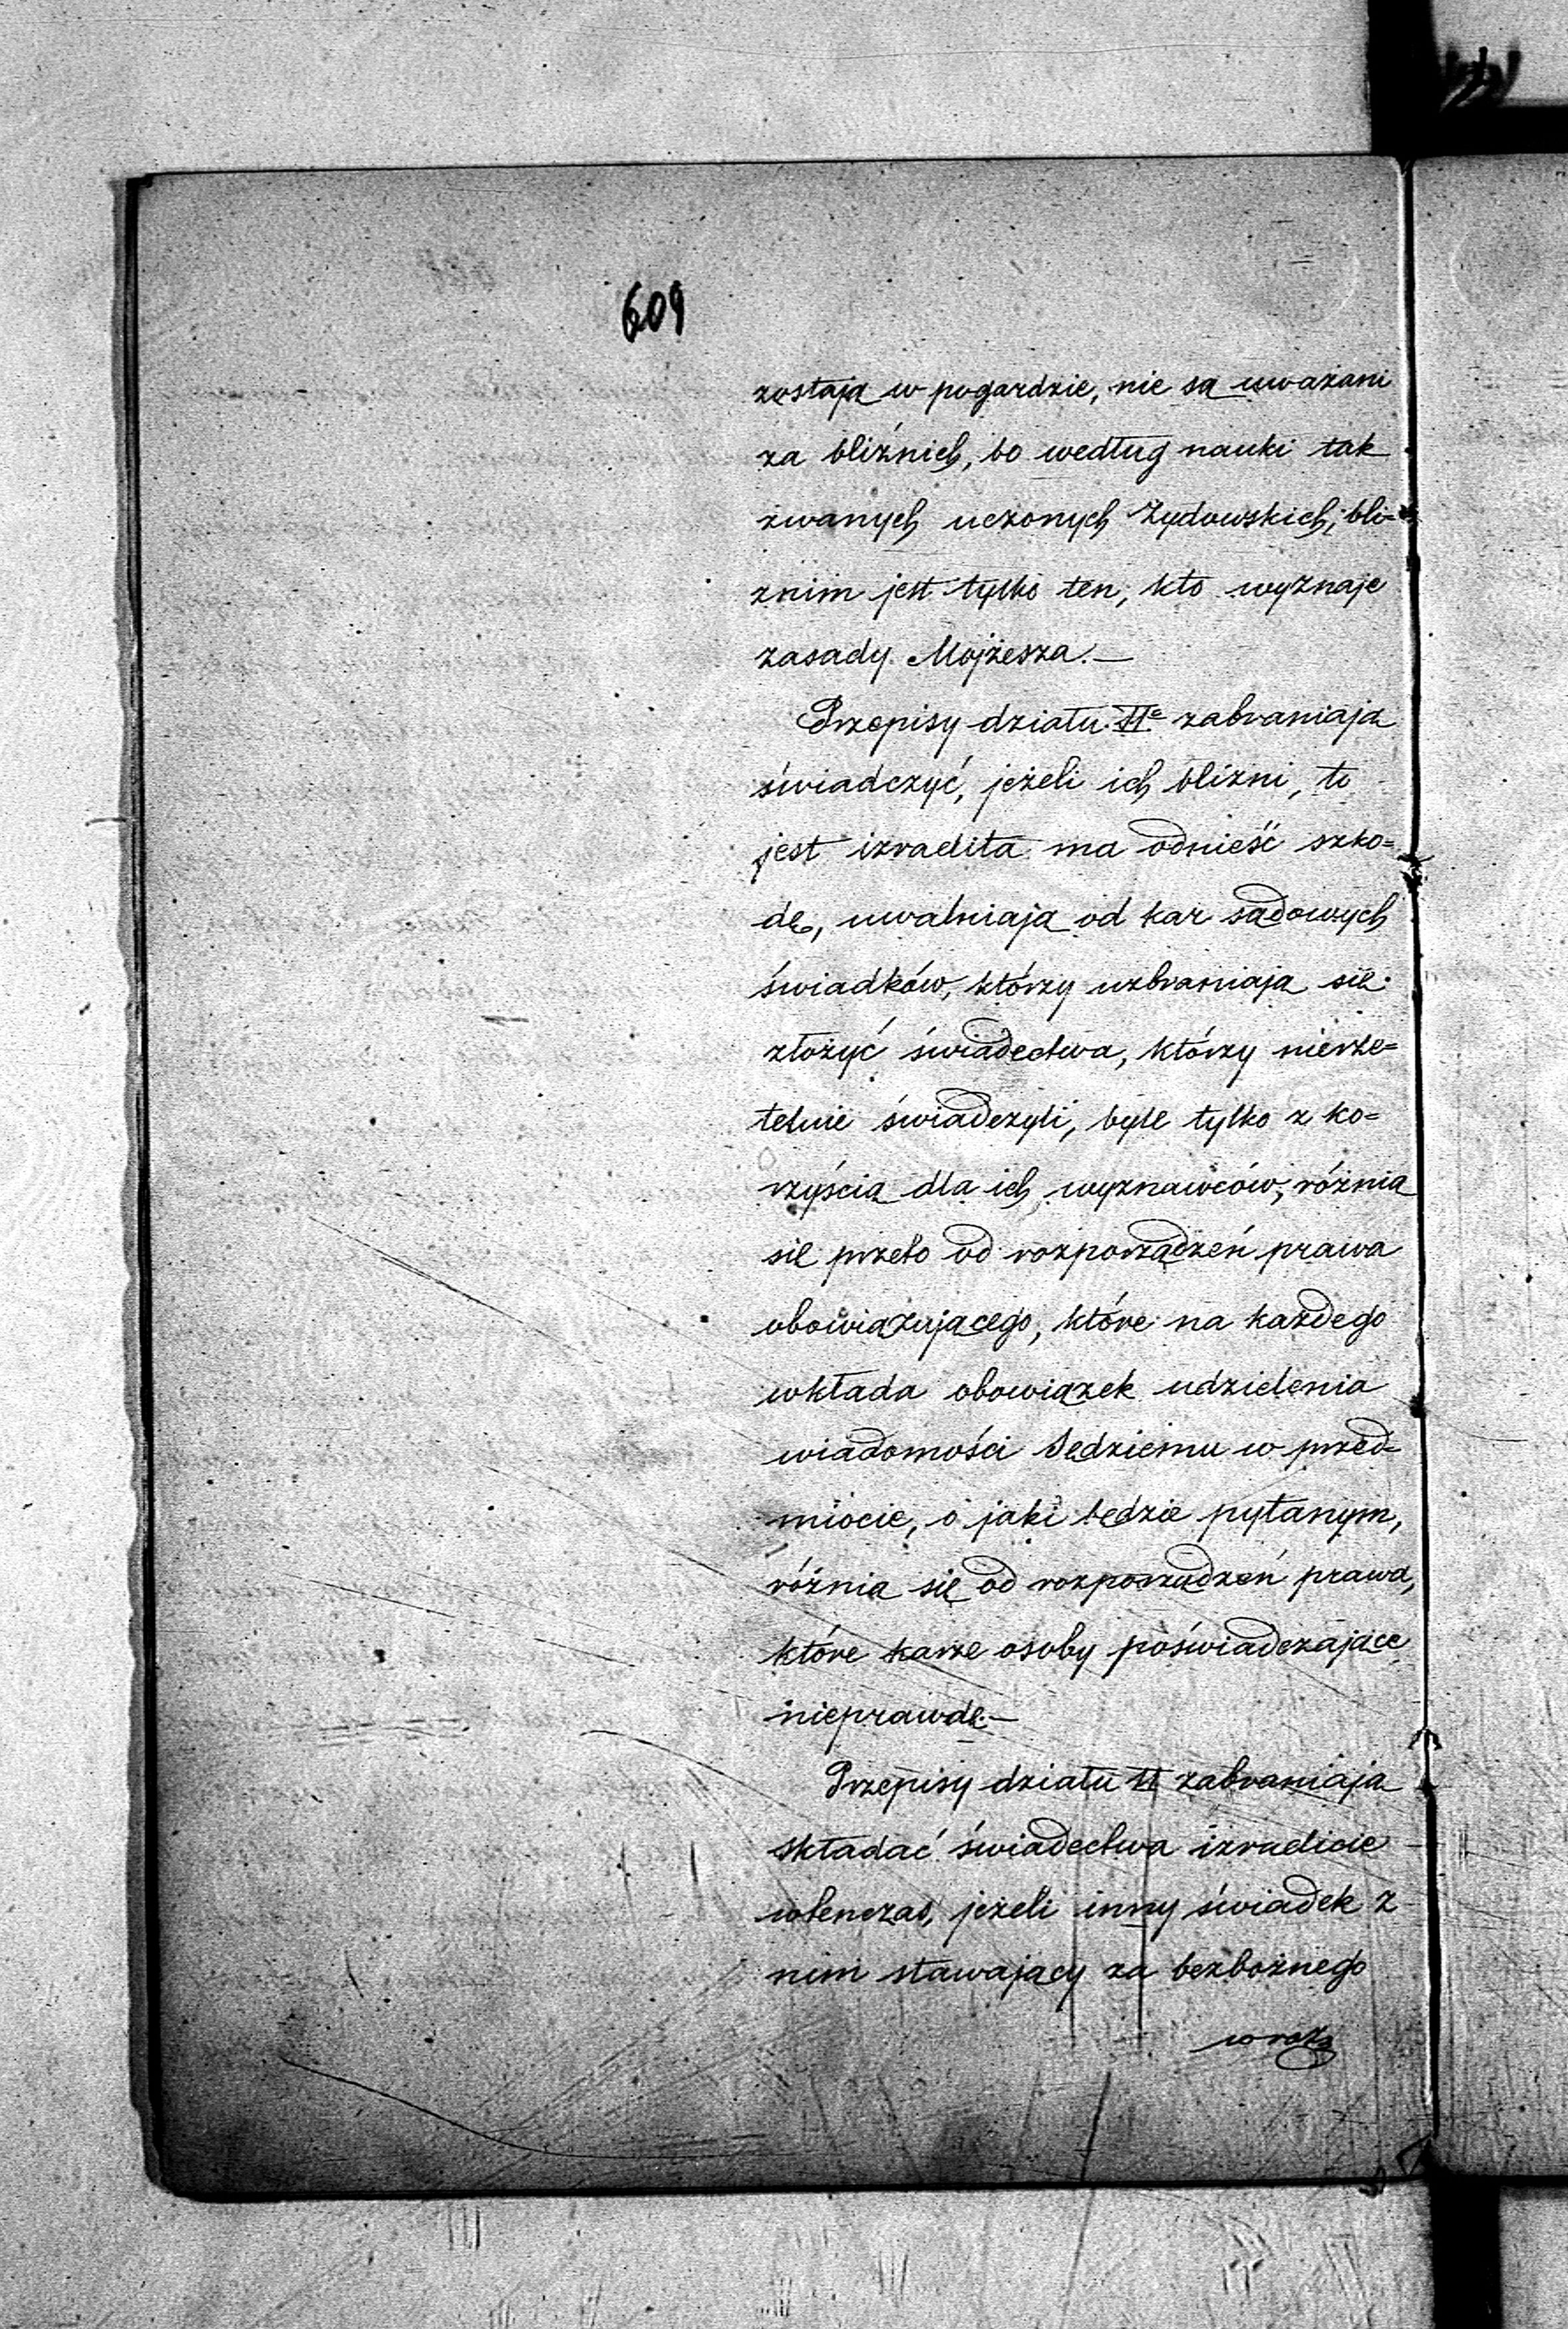 609
zostają w pogardzie, nie są uważani
za bliźnich, bo według nauki tak
zwanych uczonych Żydowskich, bli=
źnim jest tylko ten, kto wyznaje
zasady Mojżesza.—
Przepisy działu II<sup>o</sup> zabraniają
świadczyć, jeżeli ich bliźni, to
jest izraelita ma odnieść szko=
dę, uwalniają od kar sądowych
świadków, którzy wzbraniają się
złożyć świadectwa, którzy nierze=
telnie świadczyli, byle tylko z ko=
rzyścią dla ich wyznawców, różnią
się przeto od rozporządzeń prawa
obowiązującego, które na każdego
wkłada obowiązek udzielenia
wiadomości Sędziemu w przed=
miocie, o jaki będzie pytanym,
różnią się od rozporządzeń prawa,
które karze osoby poświadczające
nieprawdę.—
Przepisy działu II zabraniają
składać świadectwa izraelicie
wtenczas, jeżeli inny świadek z
nim stawający za bezbożnego